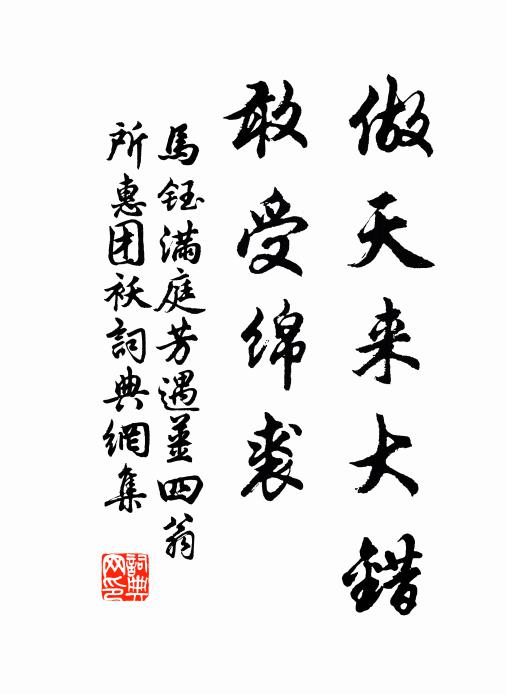 做天来大錯
敢受绵裘
馬鈺满庭芳遇姜四翁
所惠团袄詞典網集
詞典
网印